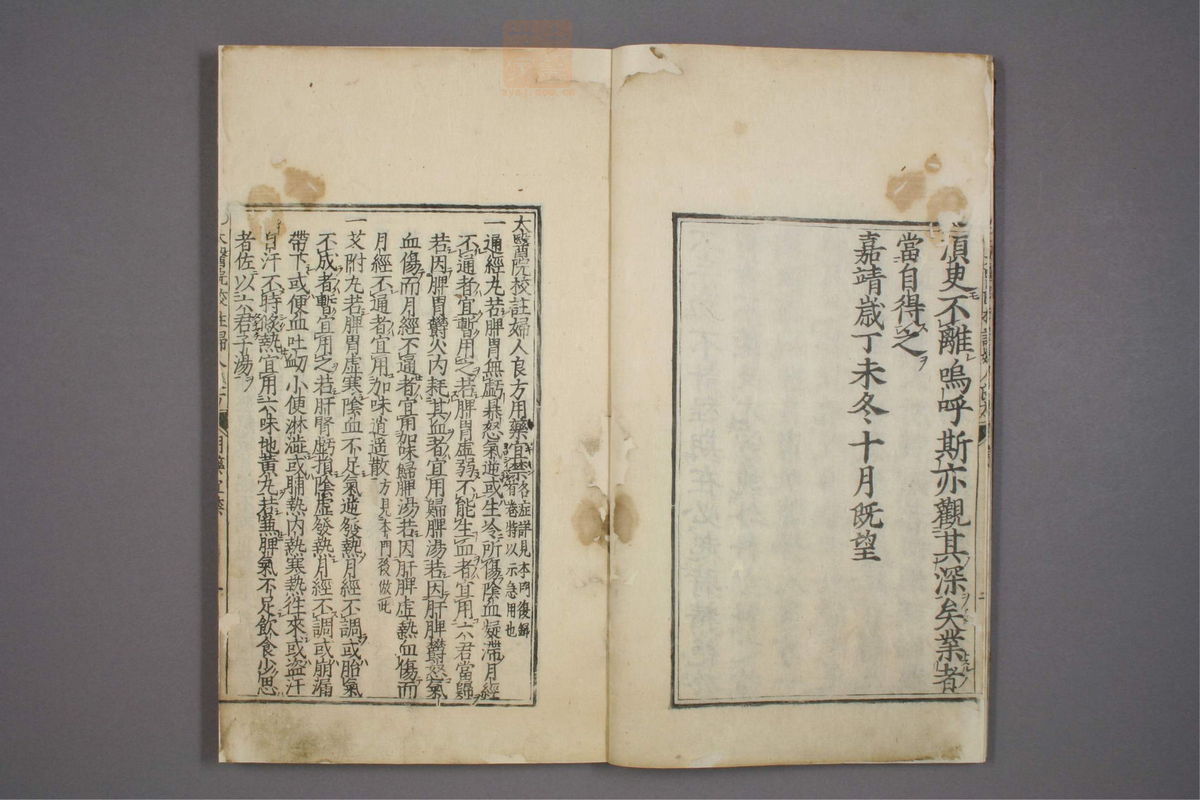 瀆史不離嗚呼斯亦觀其深矣業者
當自得之
嘉靖歲丁未冬十月既望
太醫院校註婦人良方用藥宜禁各症詳見本門復錄首卷特以示急用也
一通經丸若脾胃無虧暴怒氣逆或生冷所傷陰血凝滯月經
不通者宜暫用之若脾胃虛弱不能生血者宜用六君當歸
若因脾胃鬱火內耗其血者宜用歸脾湯若因肝脾鬱怒氣
血傷而月經不通者宜用加味歸脾湯若因肝脾虛熱血傷而
月經不通者宜用加味逍遥散方見本門後倣此
一艾附丸若脾胃虛寒陰血不足氣逆發熱月經不調或胎氣
不成者暫宜用之若肝腎虧損陰虛發熱月經不調或崩漏
帶下或便血吐衂小便淋澁或晡熱內熱寒熱徃來或盗汗
自汗不時倐熱宜用六味地黃丸若兼脾氣不足飲食少思
者佐以六君子湯